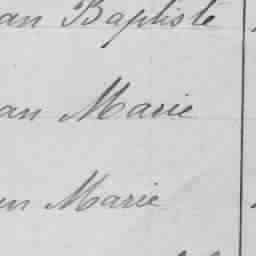 an Baptiste
an Marie
en Marie